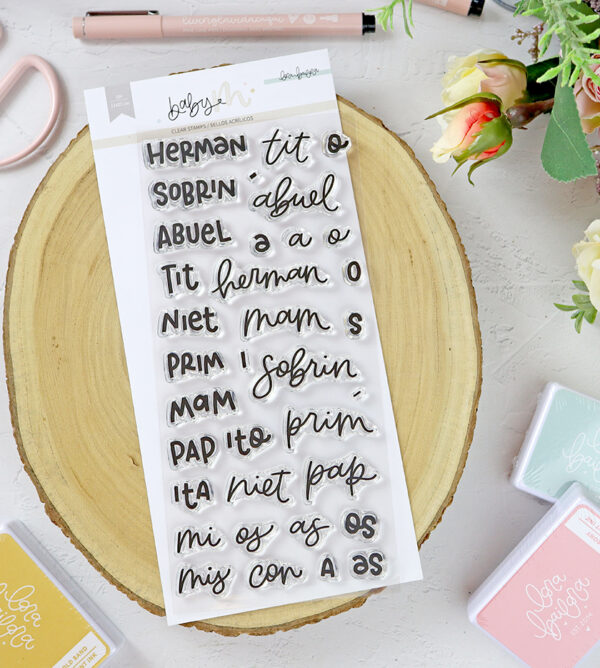 baby
lora bailora
CLEAR STAMPS / SELLOS ACRÍLICOS
HERMAN tit o
SOBRIN ' abuel
ABUEL a a o
TIT herman o
NIET mam s
PRIM ' sobrin
MAM '
PAP 'ITO prim
ITA niet pap
mi os as os
mis con A as
lora bailora
lora bailora
EST. 2014
lora bailora